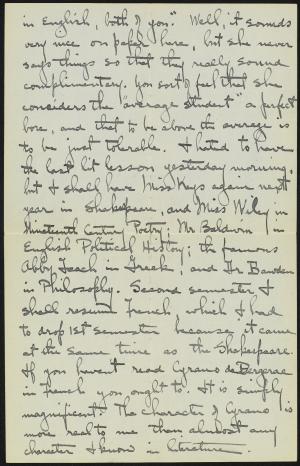 in English, both of you." Well, it sounds
very nice on paper here, but she never
says things so that they really sound
complimentary. You sort of feel that she
considers the "average student" a perfect
bore, and that to be above the average is
to be just tolerable. I hated to have
the last lit lesson yesterday morning,
but I shall have Miss Keys again next
year in Shakespeare, and Miss Wiley in
Nineteenth Century Poetry; Mr Baldwin in
English Political History; the famous
Abby Leach in Greek; and Dr Bawden
in Philosophy. Second semester I
shall resume French, which I had
to drop 1st semester because it came
at the same time as the Shakespeare.
If you haven't read Cyrano de Bergerac
in French you ought to. It is simply
magnificent. The character of Cyrano is
more real to me than almost any
character I know in literature.